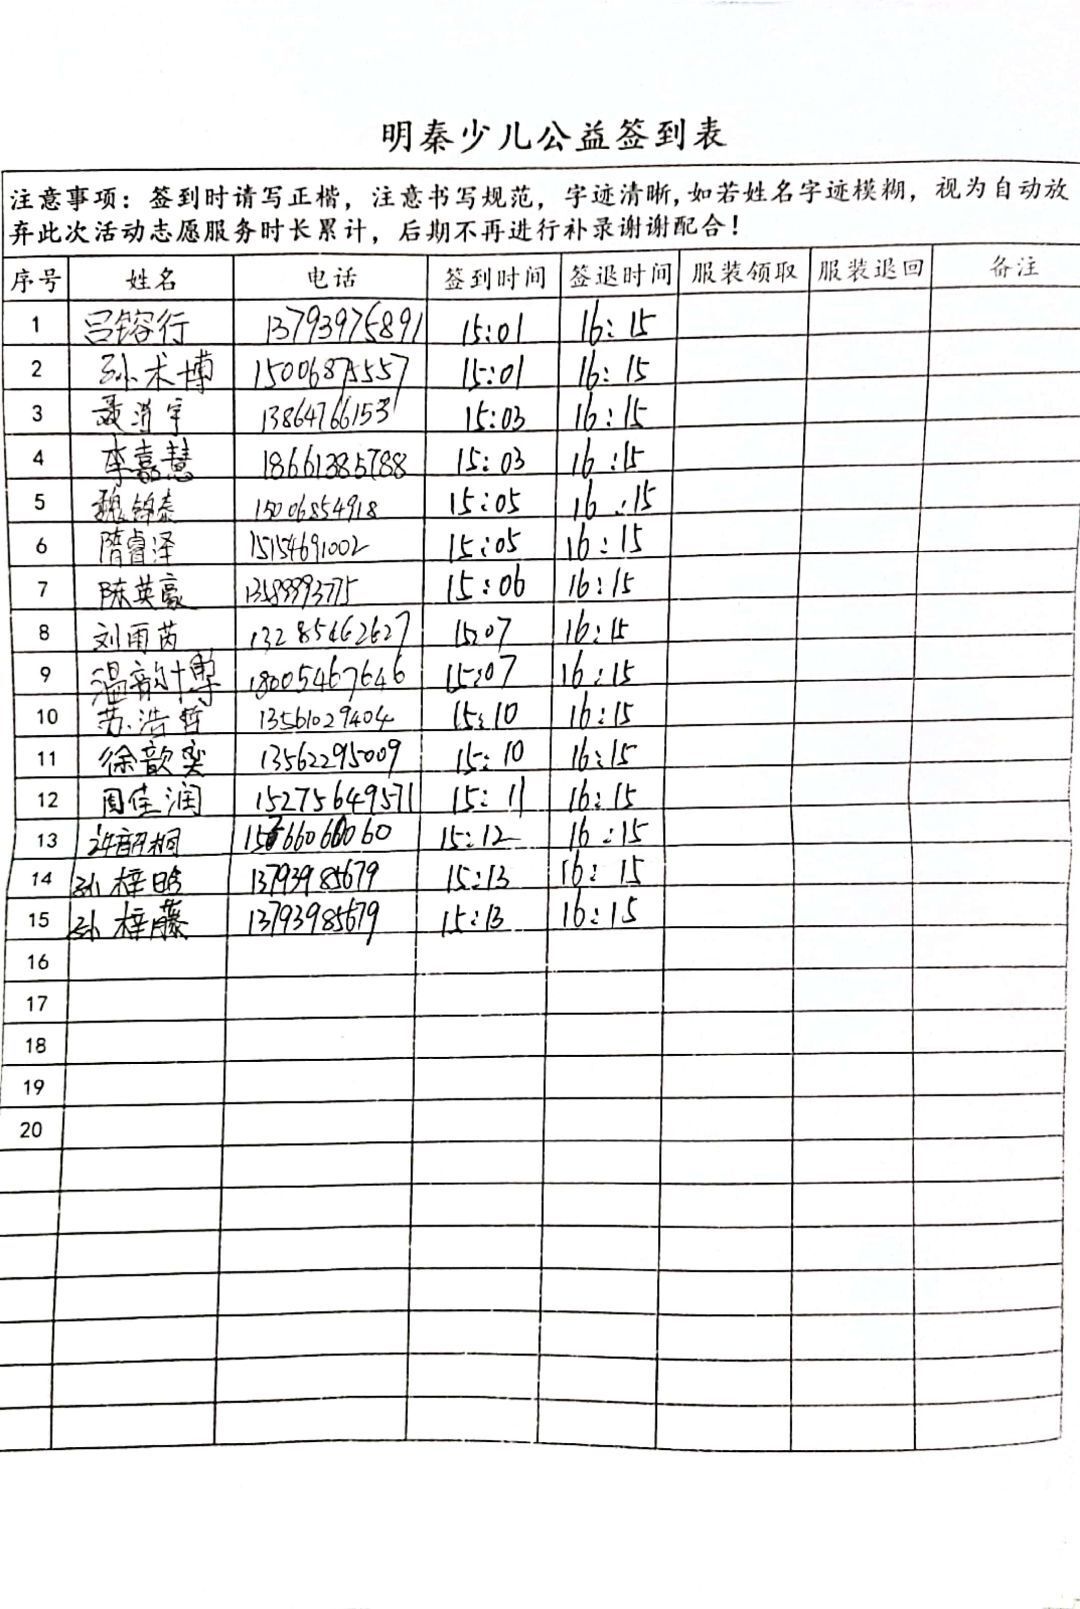 明秦少儿公益签到表
注意事项：签到时请写正楷，注意书写规范，字迹清晰，如若姓名字迹模糊，视为自动放
弃此次活动志愿服务时长累计，后期不再进行补录谢谢配合！
序号 姓名 电话 签到时间 签退时间 服装领取 服装退回 备注
1 吕镕行 13793975891 15:01 16:15
2 孙术博 15006875557 15:01 16:15
3 聂 宇 13864766153 15:03 16:15
4 李嘉慧 18661385788 15:03 16:15
5 魏锦泰 15006854918 15:05 16:15
6 隋睿泽 15154691002 15:05 16:15
7 陈英豪 15:06 16:15
8 刘雨芮 13285462627 15:07 16:15
9 温韵博 18005467646 15:07 16:15
10 苏浩哲 13561029404 15:10 16:15
11 徐歆奕 13562295009 15:10 16:15
12 周佳润 15275649571 15:11 16:15
13 许韶桐 15:12 16:15
14 孙梓晗 13793985679 15:13 16:15
15 孙梓藤 13793985679 15:13 16:15
16
17
18
19
20